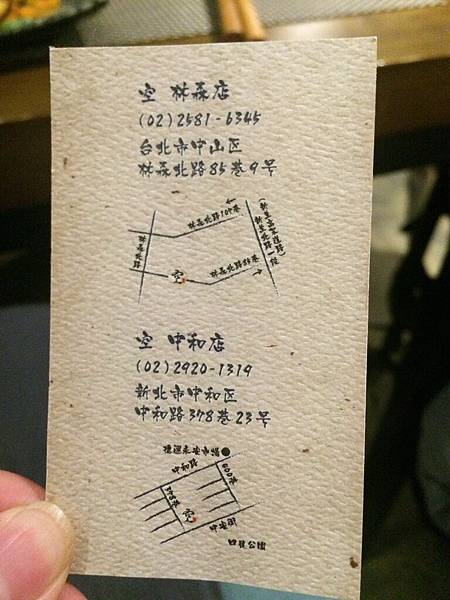 空 林森店
(02)2581-6345
台北市中山区
林森北路85巷9号
林森北路107巷
(新生高架道路)
新生北路一段
林森北路
空
林森北路85巷
空 中和店
(02)2920-1319
新北市中和区
中和路378巷23号
捷運永安市場
中和路
400巷
378巷
空
中安街
四號公園